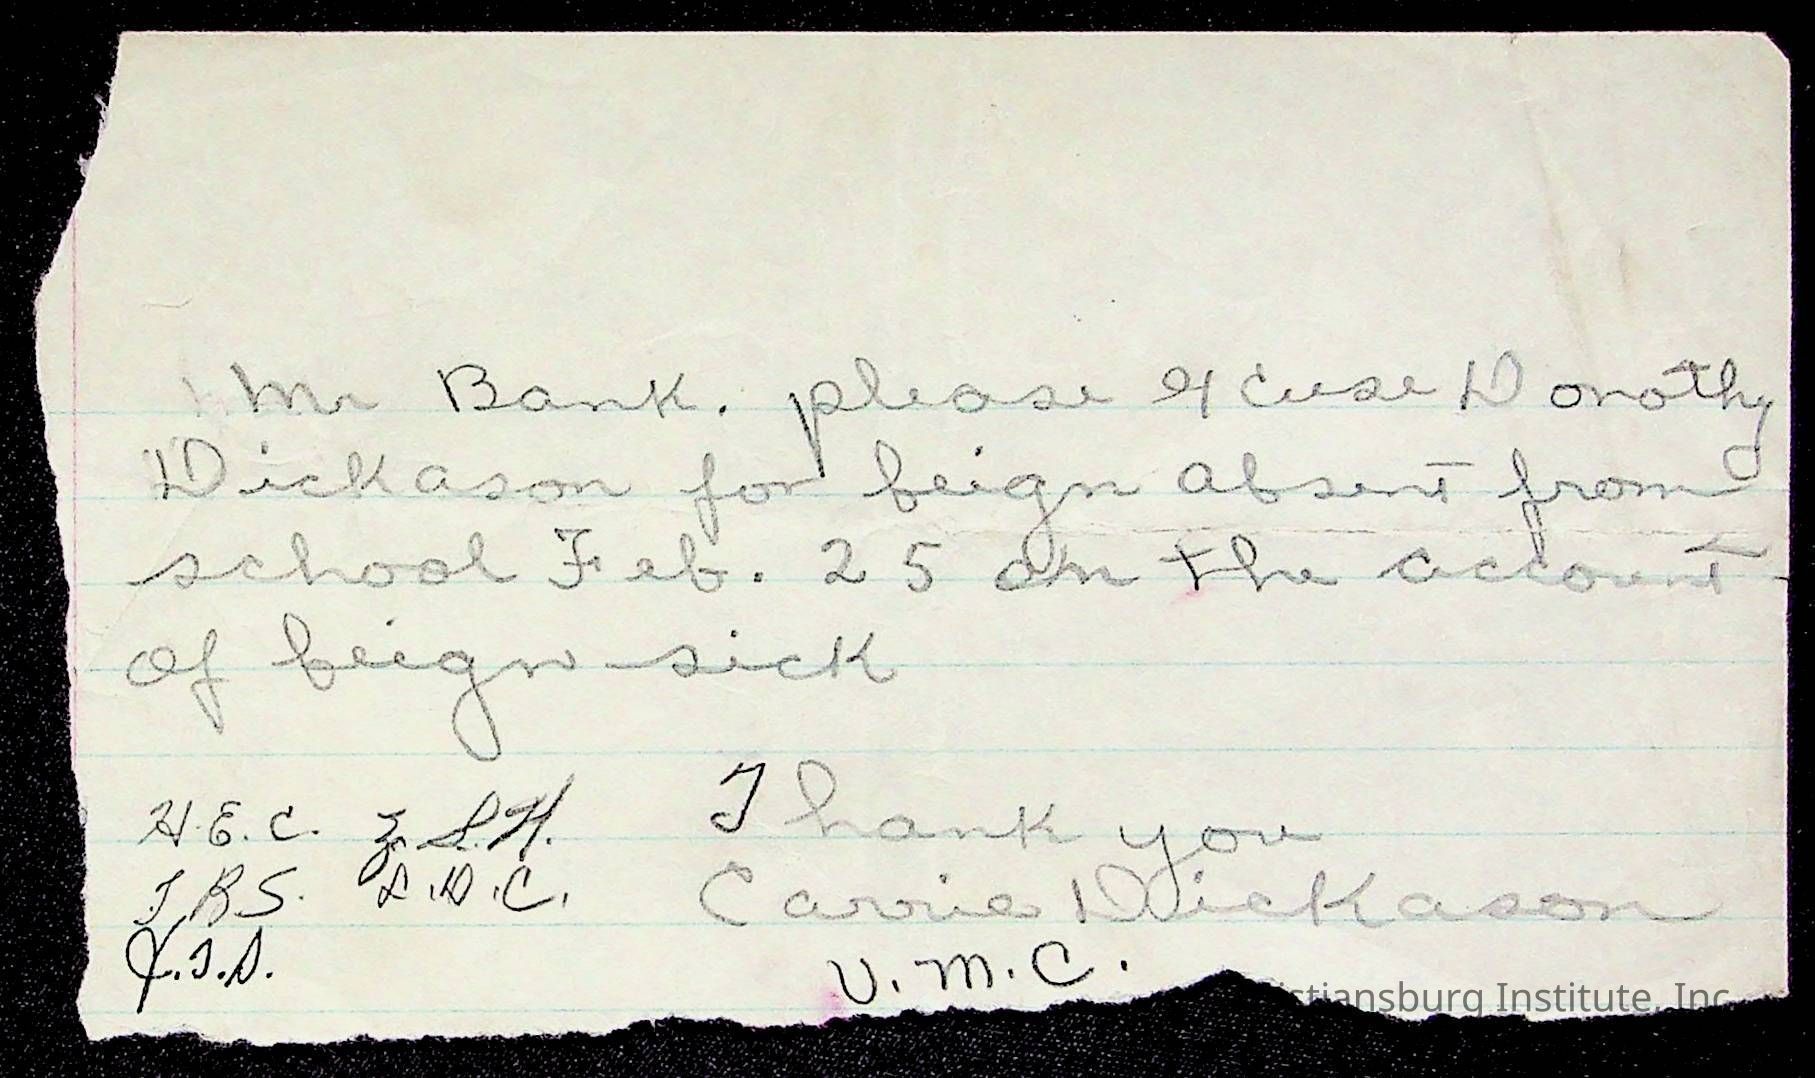 Mr Bank. please excuse Dorothy
Dickason for beign absent from
school Feb. 25 on the account
of beign sick
Thank you
Carrie Dickason
H.E.C. Z.S.H.
J.R.S. L.D.C.
J.D.
V.M.C.
istiansburg Institute, Inc.